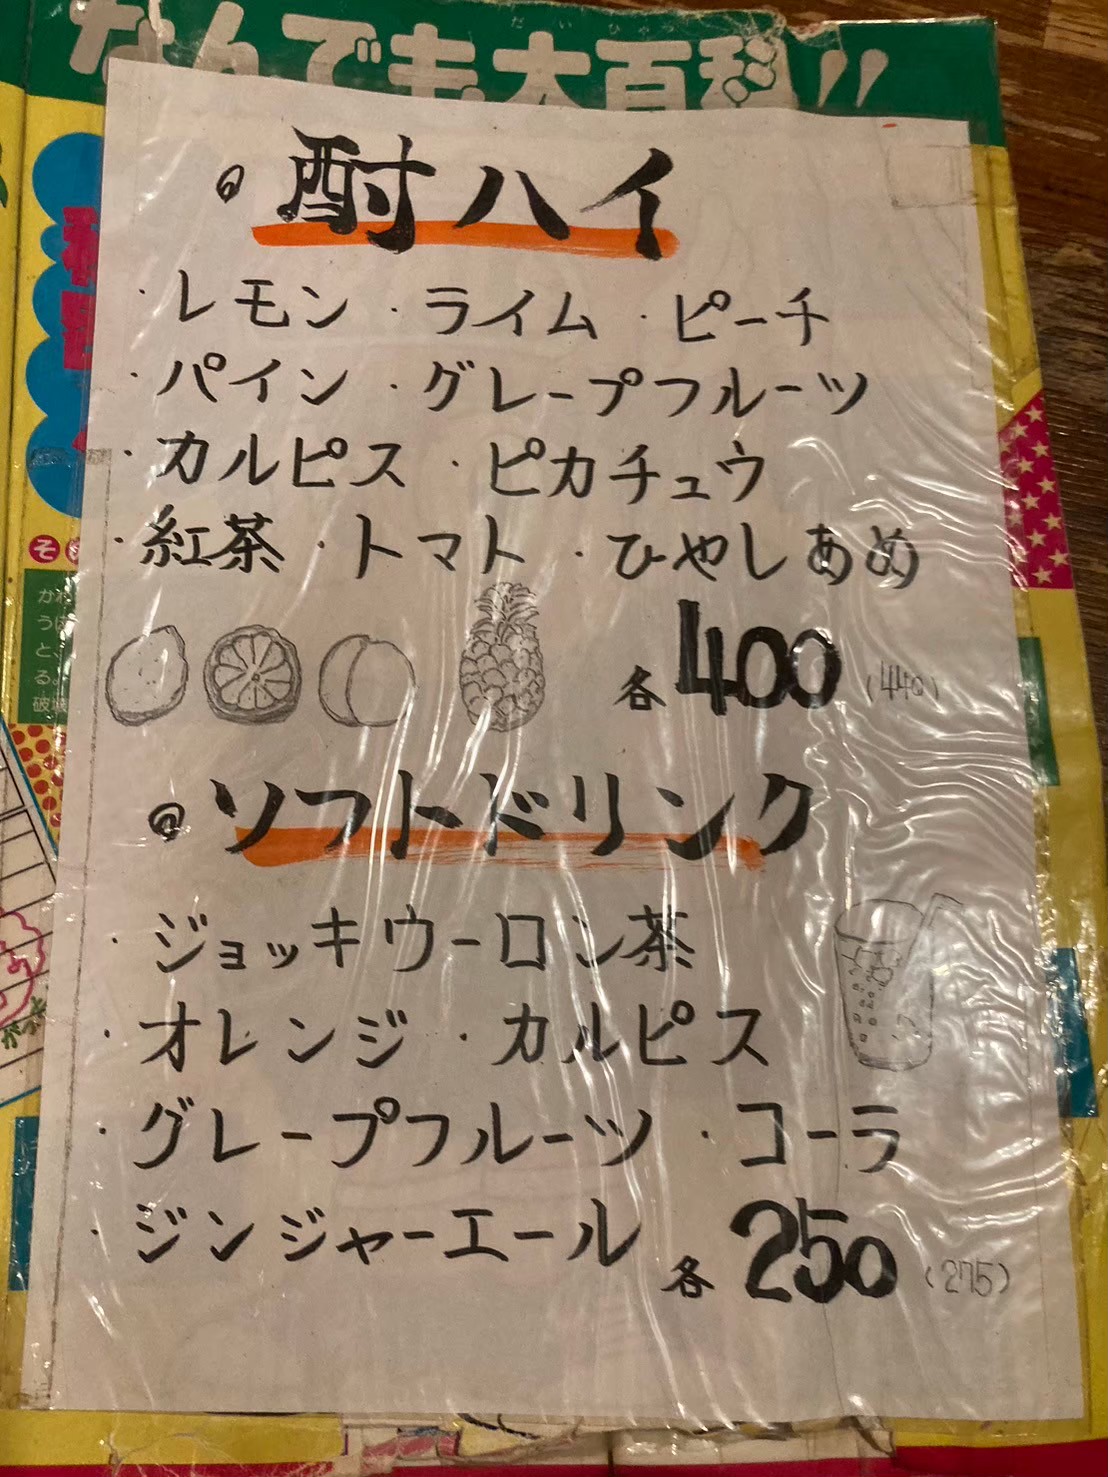 なんでも大百科!!
酎ハイ
・レモン ・ライム ・ピーチ
・パイン ・グレープフルーツ
・カルピス ・ピカチュウ
・紅茶 ・トマト ・ひやしあめ
各400(440)
ソフトドリンク
・ジョッキウーロン茶
・オレンジ ・カルピス
・グレープフルーツ ・コーラ
・ジンジャーエール
各250(275)